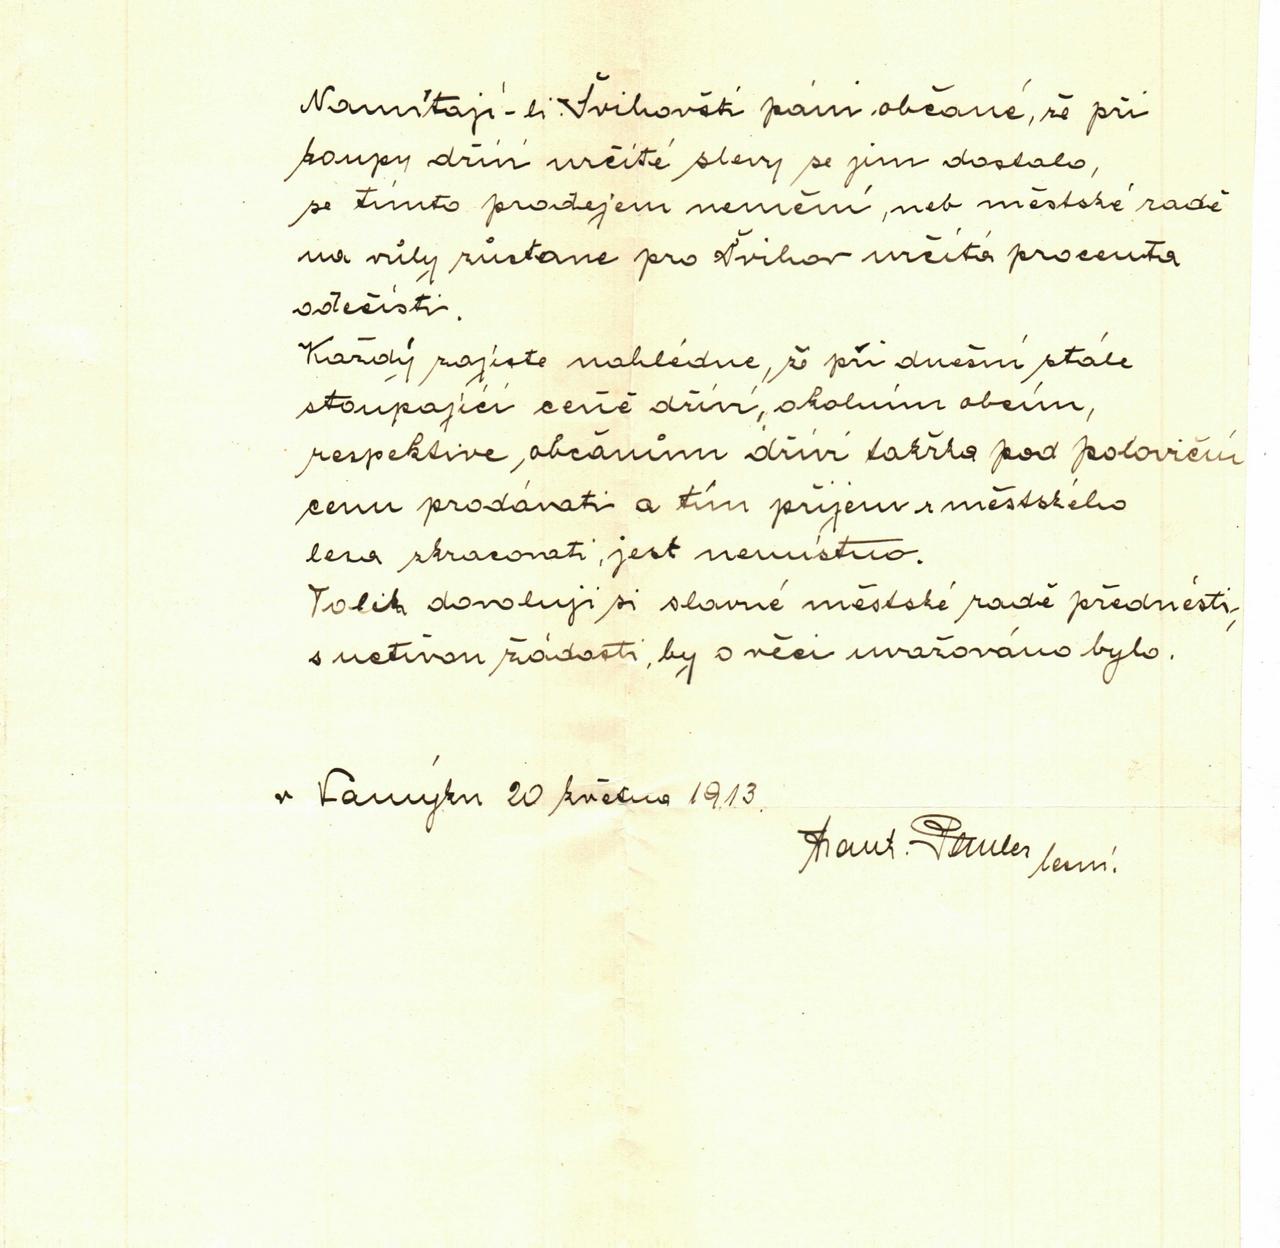 Namítají-li Švihovští páni občané, že při
koupy dříví určité slevy se jim dostalo,
se tímto prodejem nemění, neb městské radě
na vůly zůstane pro Švihov určitá procenta
odečísti.
Každý zajiste nahlédne, že při dnešní stále
stoupající ceně dříví, okolním obcím,
respektive, občanům dříví takřka pod poloviční
cenu prodávati a tím příjem z městského
lesa zkracovati, jest nemístno.
Tolik dovoluji si slavné městské radě přednésti,
s uctivou žádosti, by o věci uvažováno bylo.
v Vamýku 20 května 1913.
Frant. lesní.